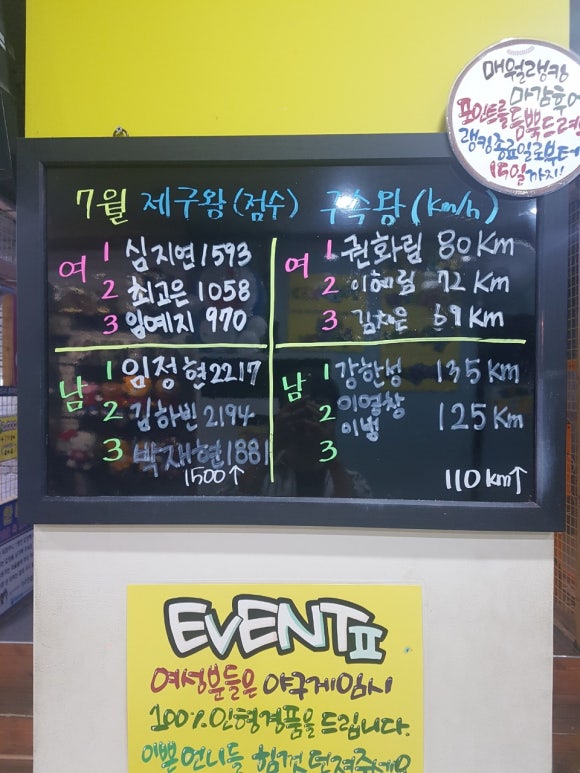 매월랭킹
마감후에
포인트를듬뿍드려요
랭킹종료일로부터
15일까지!
7월 제구왕(점수) 구속왕(Km/h)
여 1 심지연 1593
2 최고은 1058
3 임예지 970
여 1 권화림 80Km
2 이혜림 72Km
3 김채은 69Km
남 1 임정현 2217
2 김하빈 2194
3 박재현 1881
1500↑
남 1 강한성 135Km
2 이영창 125Km
이빙
3
110km↑
EVENT II
여성분들은 야구게임시
100% 인형경품을 드립니다.
이쁜언니들 힘껏 던져주세요